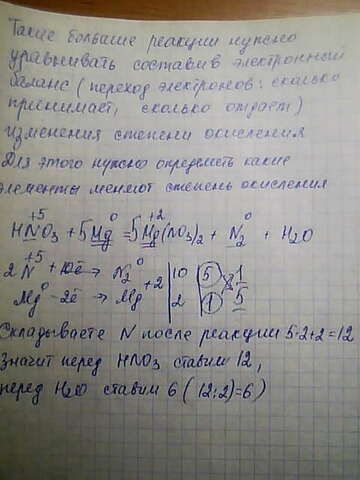 Такие большие реакции нужно
уравнивать составив электронный
баланс (переход электронов: сколько
принимает, сколько отдает)
изменения степени окисления
Для этого нужно определить какие
элементы меняют степень окисления
+5 0 +2 0
HNO3 + 5Mg = 5Mg(NO3)2 + N2 + H2O
2N+5 + 10ē → N20 | 10 | 5 | 1
Mg0 - 2ē → Mg+2 | 2 | 1 | 5
Складываете N после реакции 5·2+2=12
Значит перед HNO3 ставим 12,
перед H2O ставим 6 (12:2=6)